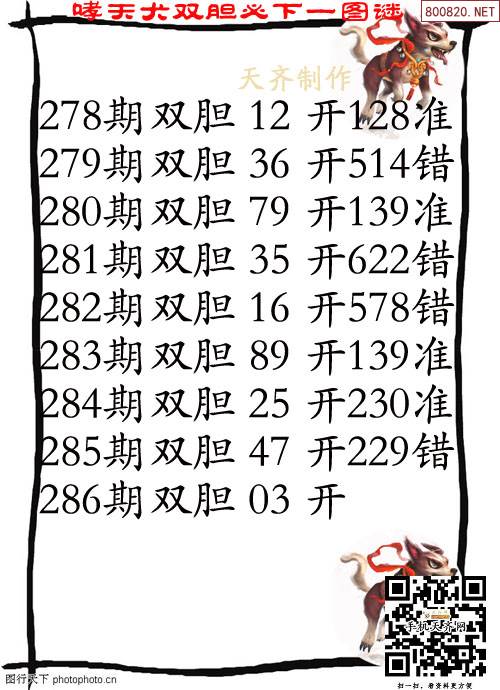 哮天犬双胆必下一图谜
800820.NET
天齐制作
278期 双胆 12 开128准
279期 双胆 36 开514错
280期 双胆 79 开139准
281期 双胆 35 开622错
282期 双胆 16 开578错
283期 双胆 89 开139准
284期 双胆 25 开230准
285期 双胆 47 开229错
286期 双胆 03 开
手机天齐网
扫一扫，看资料更方便
图行天下 photophoto.cn